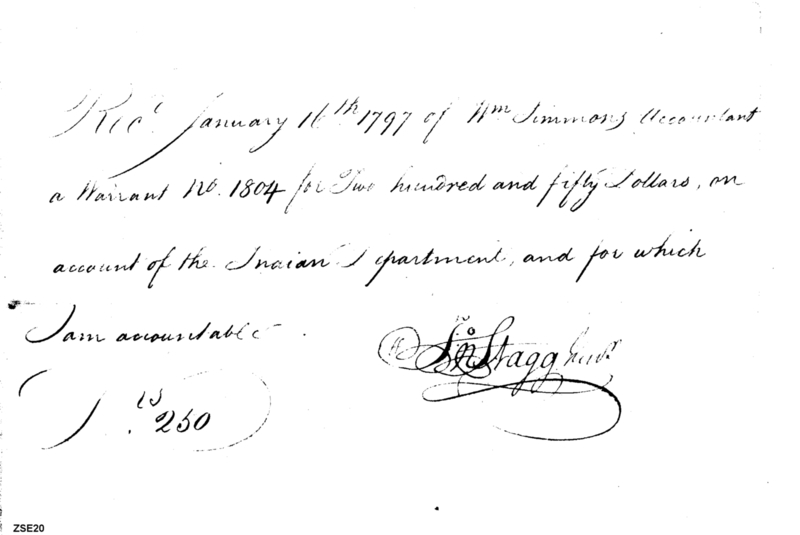 Rec.d January 16th 1797 of Wm Simmons Accountant
a Warrant No. 1804 for Two hundred and fifty Dollars, on
account of the Indian Department, and for which
I am accountable.
Jno Stagg Junr
Ds. 250
ZSE20